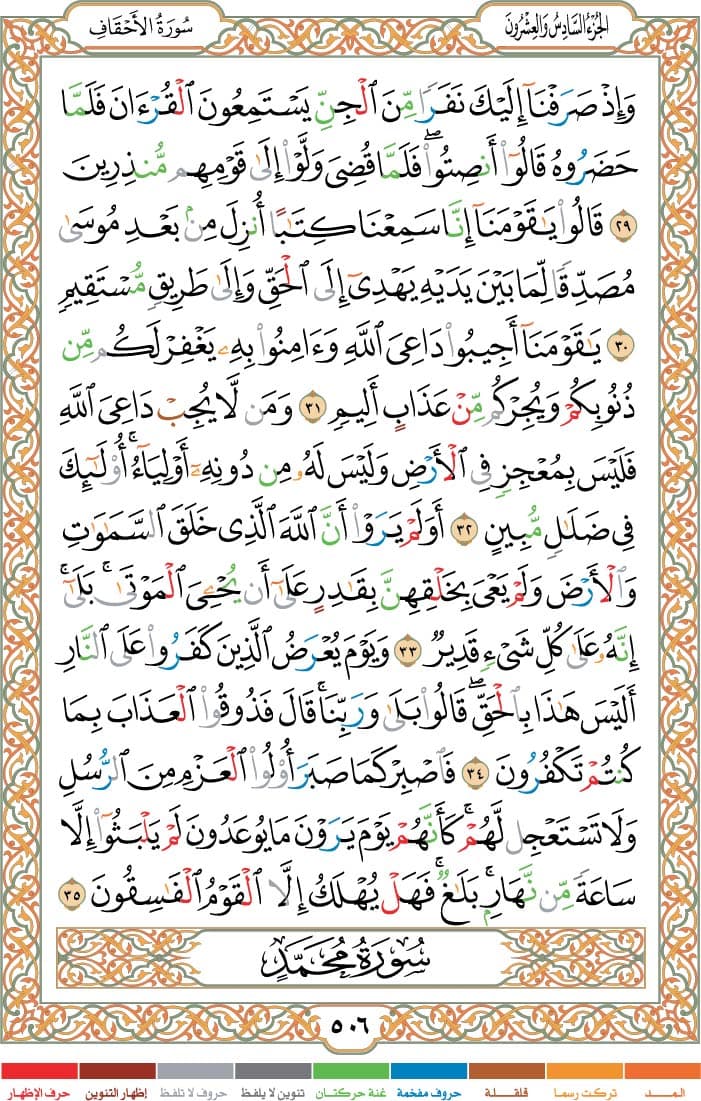 الجُزْءُ السَّادِسُ وَالْعِشْرُونَ
سُورَةُ الأَحْقَافِ
وَإِذْ صَرَفْنَآ إِلَيْكَ نَفَرًا مِّنَ ٱلْجِنِّ يَسْتَمِعُونَ ٱلْقُرْءَانَ فَلَمَّا
حَضَرُوهُ قَالُوٓا۟ أَنصِتُوا۟ۖ فَلَمَّا قُضِىَ وَلَّوْا۟ إِلَىٰ قَوْمِهِم مُّنذِرِينَ
٢٩ قَالُوا۟ يَـٰقَوْمَنَآ إِنَّا سَمِعْنَا كِتَـٰبًا أُنزِلَ مِنۢ بَعْدِ مُوسَىٰ
مُصَدِّقًا لِّمَا بَيْنَ يَدَيْهِ يَهْدِىٓ إِلَى ٱلْحَقِّ وَإِلَىٰ طَرِيقٍ مُّسْتَقِيمٍ
٣٠ يَـٰقَوْمَنَآ أَجِيبُوا۟ دَاعِىَ ٱللَّهِ وَءَامِنُوا۟ بِهِۦ يَغْفِرْ لَكُم مِّن
ذُنُوبِكُمْ وَيُجِرْكُم مِّنْ عَذَابٍ أَلِيمٍ ٣١ وَمَن لَّا يُجِبْ دَاعِىَ ٱللَّهِ
فَلَيْسَ بِمُعْجِزٍ فِى ٱلْأَرْضِ وَلَيْسَ لَهُۥ مِن دُونِهِۦٓ أَوْلِيَآءُۚ أُو۟لَـٰٓئِكَ
فِى ضَلَـٰلٍ مُّبِينٍ ٣٢ أَوَلَمْ يَرَوْا۟ أَنَّ ٱللَّهَ ٱلَّذِى خَلَقَ ٱلسَّمَـٰوَٰتِ
وَٱلْأَرْضَ وَلَمْ يَعْىَ بِخَلْقِهِنَّ بِقَـٰدِرٍ عَلَىٰٓ أَن يُحْـِۧىَ ٱلْمَوْتَىٰۚ بَلَىٰٓ
إِنَّهُۥ عَلَىٰ كُلِّ شَىْءٍ قَدِيرٌ ٣٣ وَيَوْمَ يُعْرَضُ ٱلَّذِينَ كَفَرُوا۟ عَلَى ٱلنَّارِ
أَلَيْسَ هَـٰذَا بِٱلْحَقِّۖ قَالُوا۟ بَلَىٰ وَرَبِّنَاۚ قَالَ فَذُوقُوا۟ ٱلْعَذَابَ بِمَا
كُنتُمْ تَكْفُرُونَ ٣٤ فَٱصْبِرْ كَمَا صَبَرَ أُو۟لُوا۟ ٱلْعَزْمِ مِنَ ٱلرُّسُلِ
وَلَا تَسْتَعْجِل لَّهُمْۚ كَأَنَّهُمْ يَوْمَ يَرَوْنَ مَا يُوعَدُونَ لَمْ يَلْبَثُوٓا۟ إِلَّا
سَاعَةً مِّن نَّهَارٍۭۚ بَلَـٰغٌۚ فَهَلْ يُهْلَكُ إِلَّا ٱلْقَوْمُ ٱلْفَـٰسِقُونَ ٣٥
سُورَةُ مُحَمَّدٍ
٥٠٦
المــد تركت رسما قلقلة حروف مفخمة غنة حركتان تنوين لا يلفظ حروف لا تلفظ إظهار التنوين حرف الإظهار